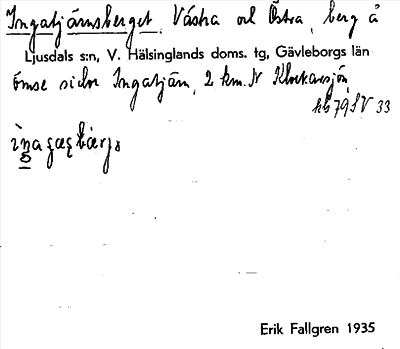 Ingatjärnsberget, Västra och Östra, berg å
Ljusdals s:n, V. Hälsinglands doms. tg, Gävleborgs län
ömse sidor Ingatjärn, 2 km. N Klockarsjön
79 SV 33
Erik Fallgren 1935